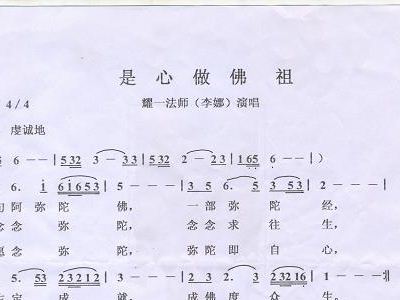 是心做佛祖
4/4
耀一法师（李娜）演唱
虔诚地
6 - - | 5 3 2 3 - 3 3 | 5 3 2 2 - 2 3 | 1 6 5 - - |）
6. i | 6 i 6 5 3 | 5 - - - | 3 5 6. 5 | 3 5 5 3 | 2 - - - |
阿弥陀佛， 一部弥陀经，
念弥陀， 念念求往生，
念弥陀， 弥陀即自心，
5. 5 3 | 2 3 2 1 2 | 3 - - - | 2 3 2. 3 | 2 3 2 1 6 | 1 - -
定成就， 成佛度众生，